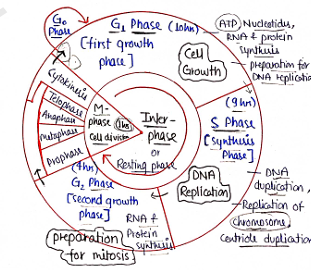 G₀
Phase
G₁ Phase (10hr)
[first growth
phase]
ATP, Nucleotides,
RNA & protein
synthesis
Preparation for
DNA replication
Cell
Growth
(9hr)
S Phase
[synthesis
Phase]
DNA
duplication,
Replication of
chromosome,
Centriole duplication
DNA
Replication
Cytokinesis
Telophase
Anaphase
metaphase
Prophase
M-
phase (1hr)
cell division
Inter-
phase
or
Resting phase
(4hr)
G₂ Phase
[second growth
phase]
RNA &
Protein
synthesis
preparation
for mitosis